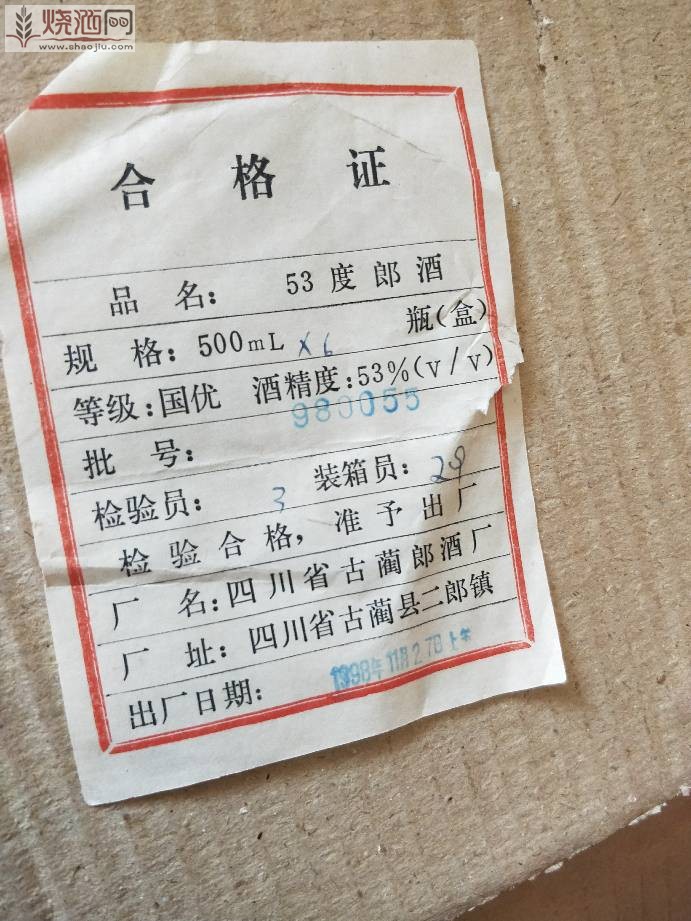 烧酒网
www.shaojiu.com
合格证
品名: 53度郎酒
规格: 500mL ×6 瓶(盒)
等级: 国优 酒精度: 53%(v/v)
批号: 980055
检验员: 3 装箱员: 29
检验合格, 准予出厂
厂名: 四川省古蔺郎酒厂
厂址: 四川省古蔺县二郎镇
出厂日期: 1998年11月27日上午